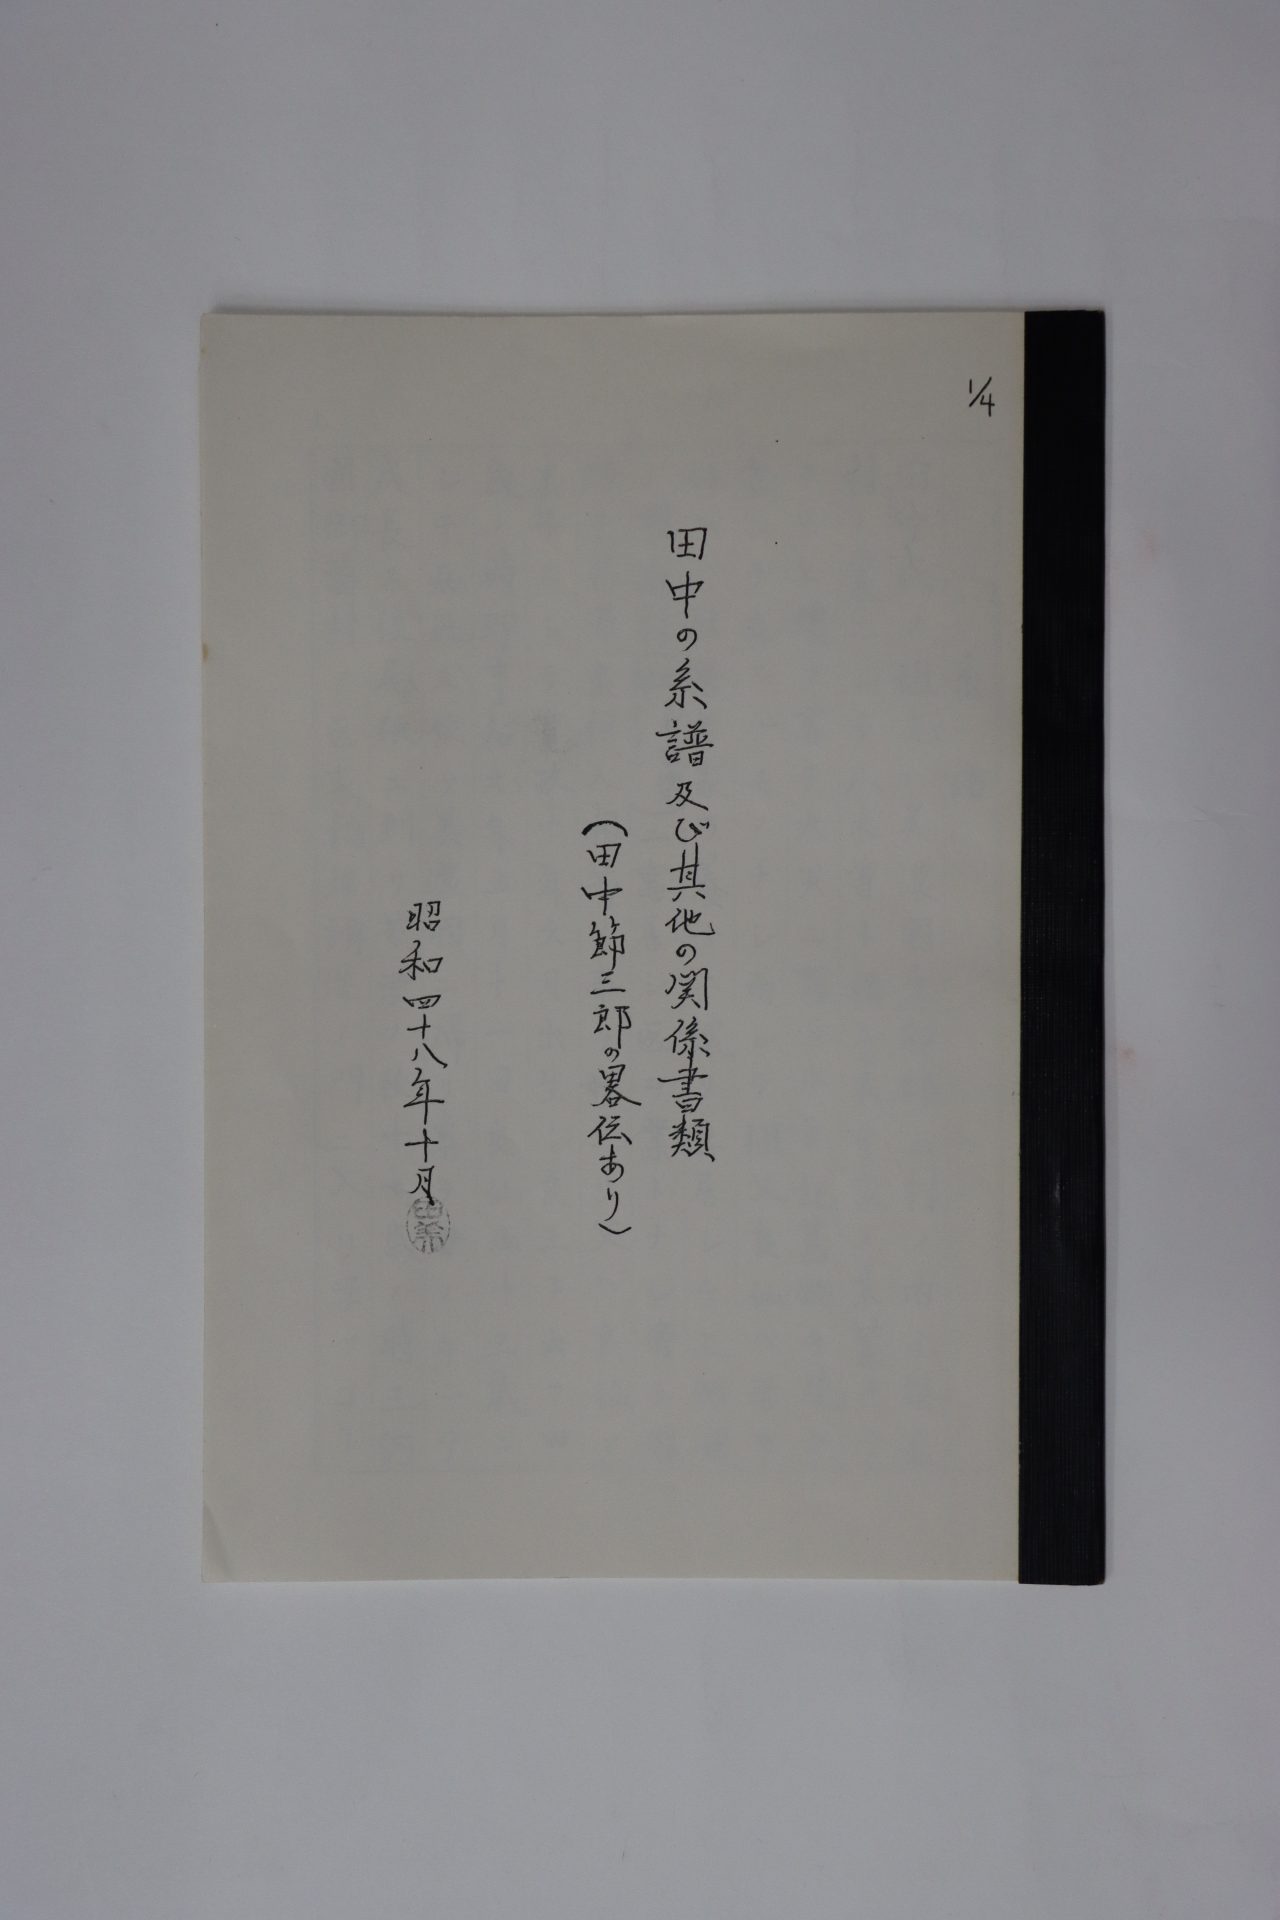 1/4
田中の系譜及び其他の関係書類
（田中節三郎の畧伝あり）
昭和四十八年十月